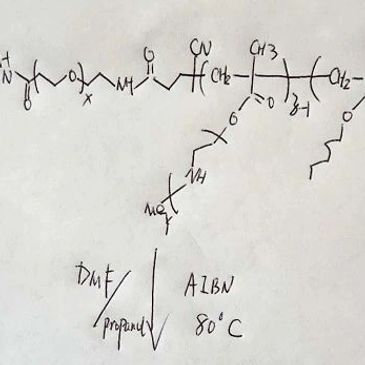 H
N
O
O
x
NH
O
CN
CH2
CH3
O
O
8-1
CH2
O
NH
DMF/propanol
AIBN
80°C